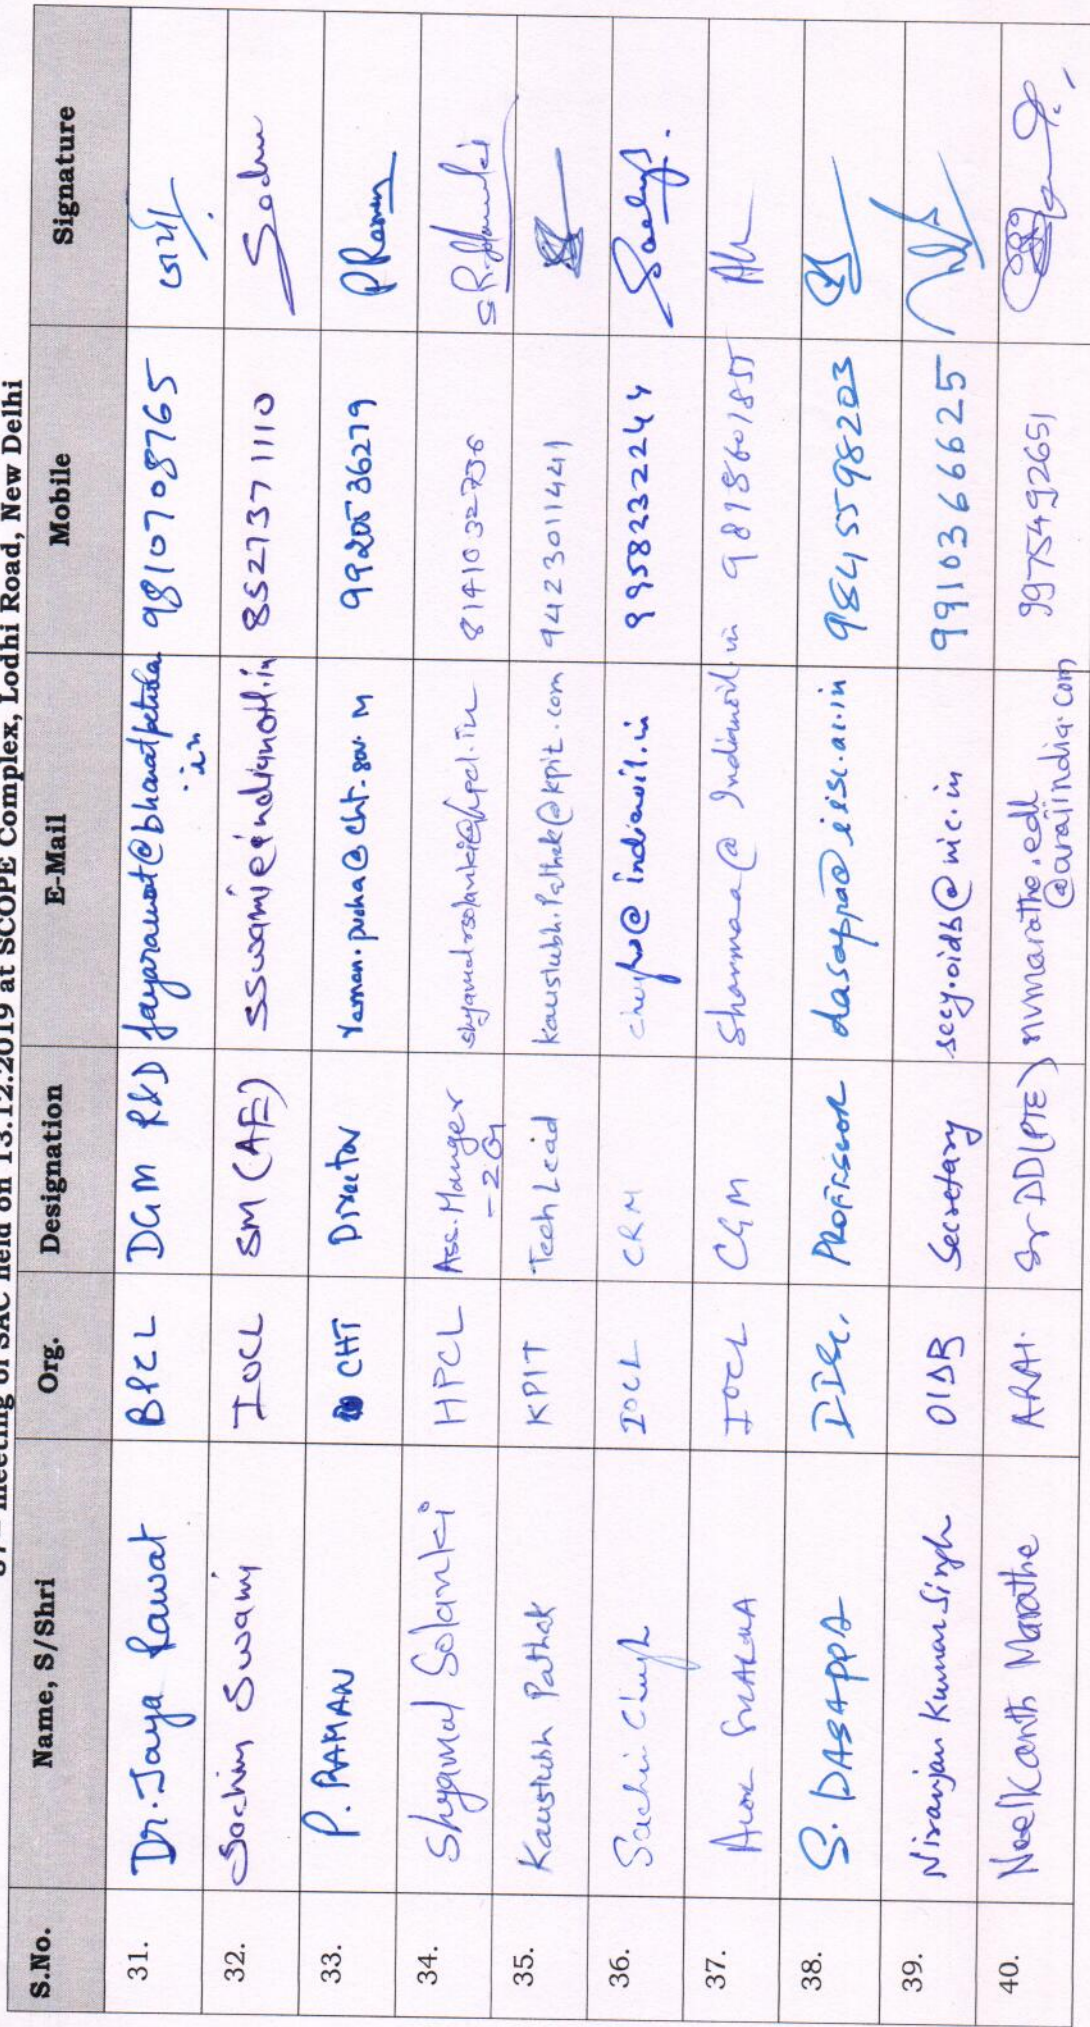 meeting of SAC held on 13.12.2019 at SCOPE Complex, Lodhi Road, New Delhi
S.No. Name, S/Shri Org. Designation E-Mail Mobile Signature
31. Dr. Jaya Rawat BPCL DGM R&D jayarawat@bharatpetroleum 9810708765
.in
32. Sachin Swamy IOCL SM (AE) sswamie@indianoil.in 8527371110
33. P. RAMAN CHT Director 9920536279 PRaman
34. Shyamal Solanki HPCL Ass. Manger shyamalrsolanki@hpcl.in
-2G
35. Kaustubh Pathak KPIT Tech Lead kaustubh.Pathak@kpit.com 9423011441
36. Sachin Chugh IOCL CRM @indianoil.in 9958232244
37. Alok SHARMA IOCL CGM Sharmaa@Indianoil.in 9818601855
38. S. DASAPPA IISc. PROFESSOR dasappa@iisc.ac.in 9845598203
39. Niranjan Kumar Singh OIDB Secretary secy.oidb@nic.in 9910366625
40. NeelKanth Marathe ARAI. Sr DD(PTE) nvmarathe.edl 9975492651
@araiindia.com